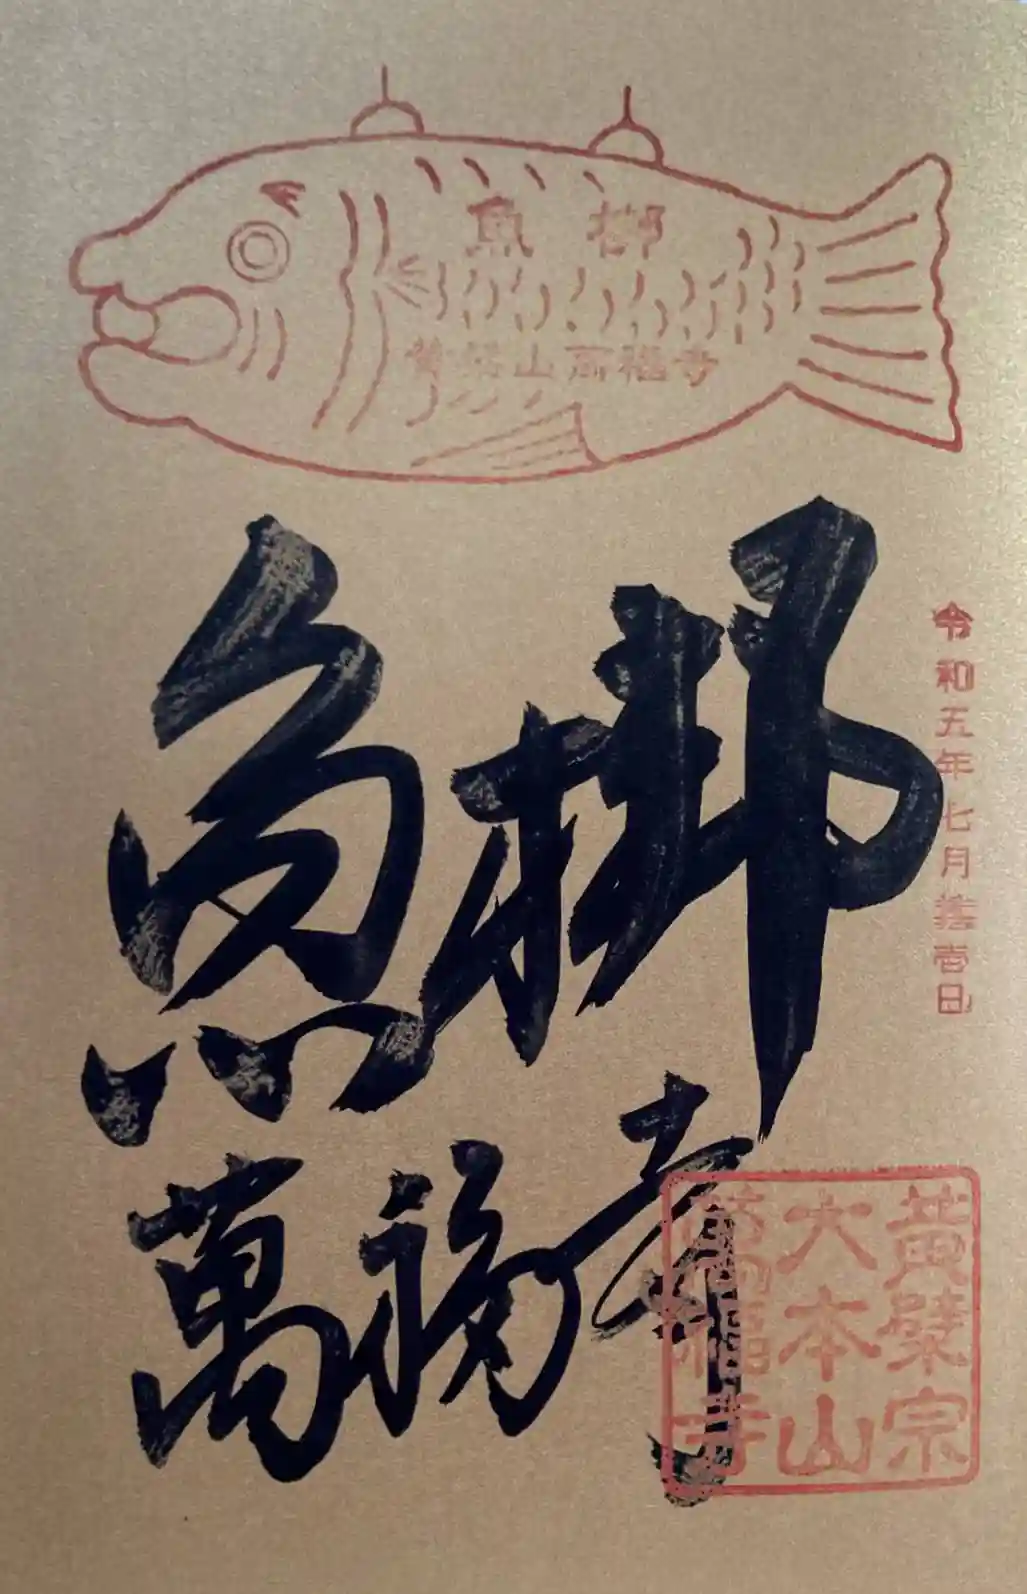 魚梆
黄檗山萬福寺
魚梆
萬福寺
令和五年七月拾壱日
黄檗宗
大本山
萬福寺